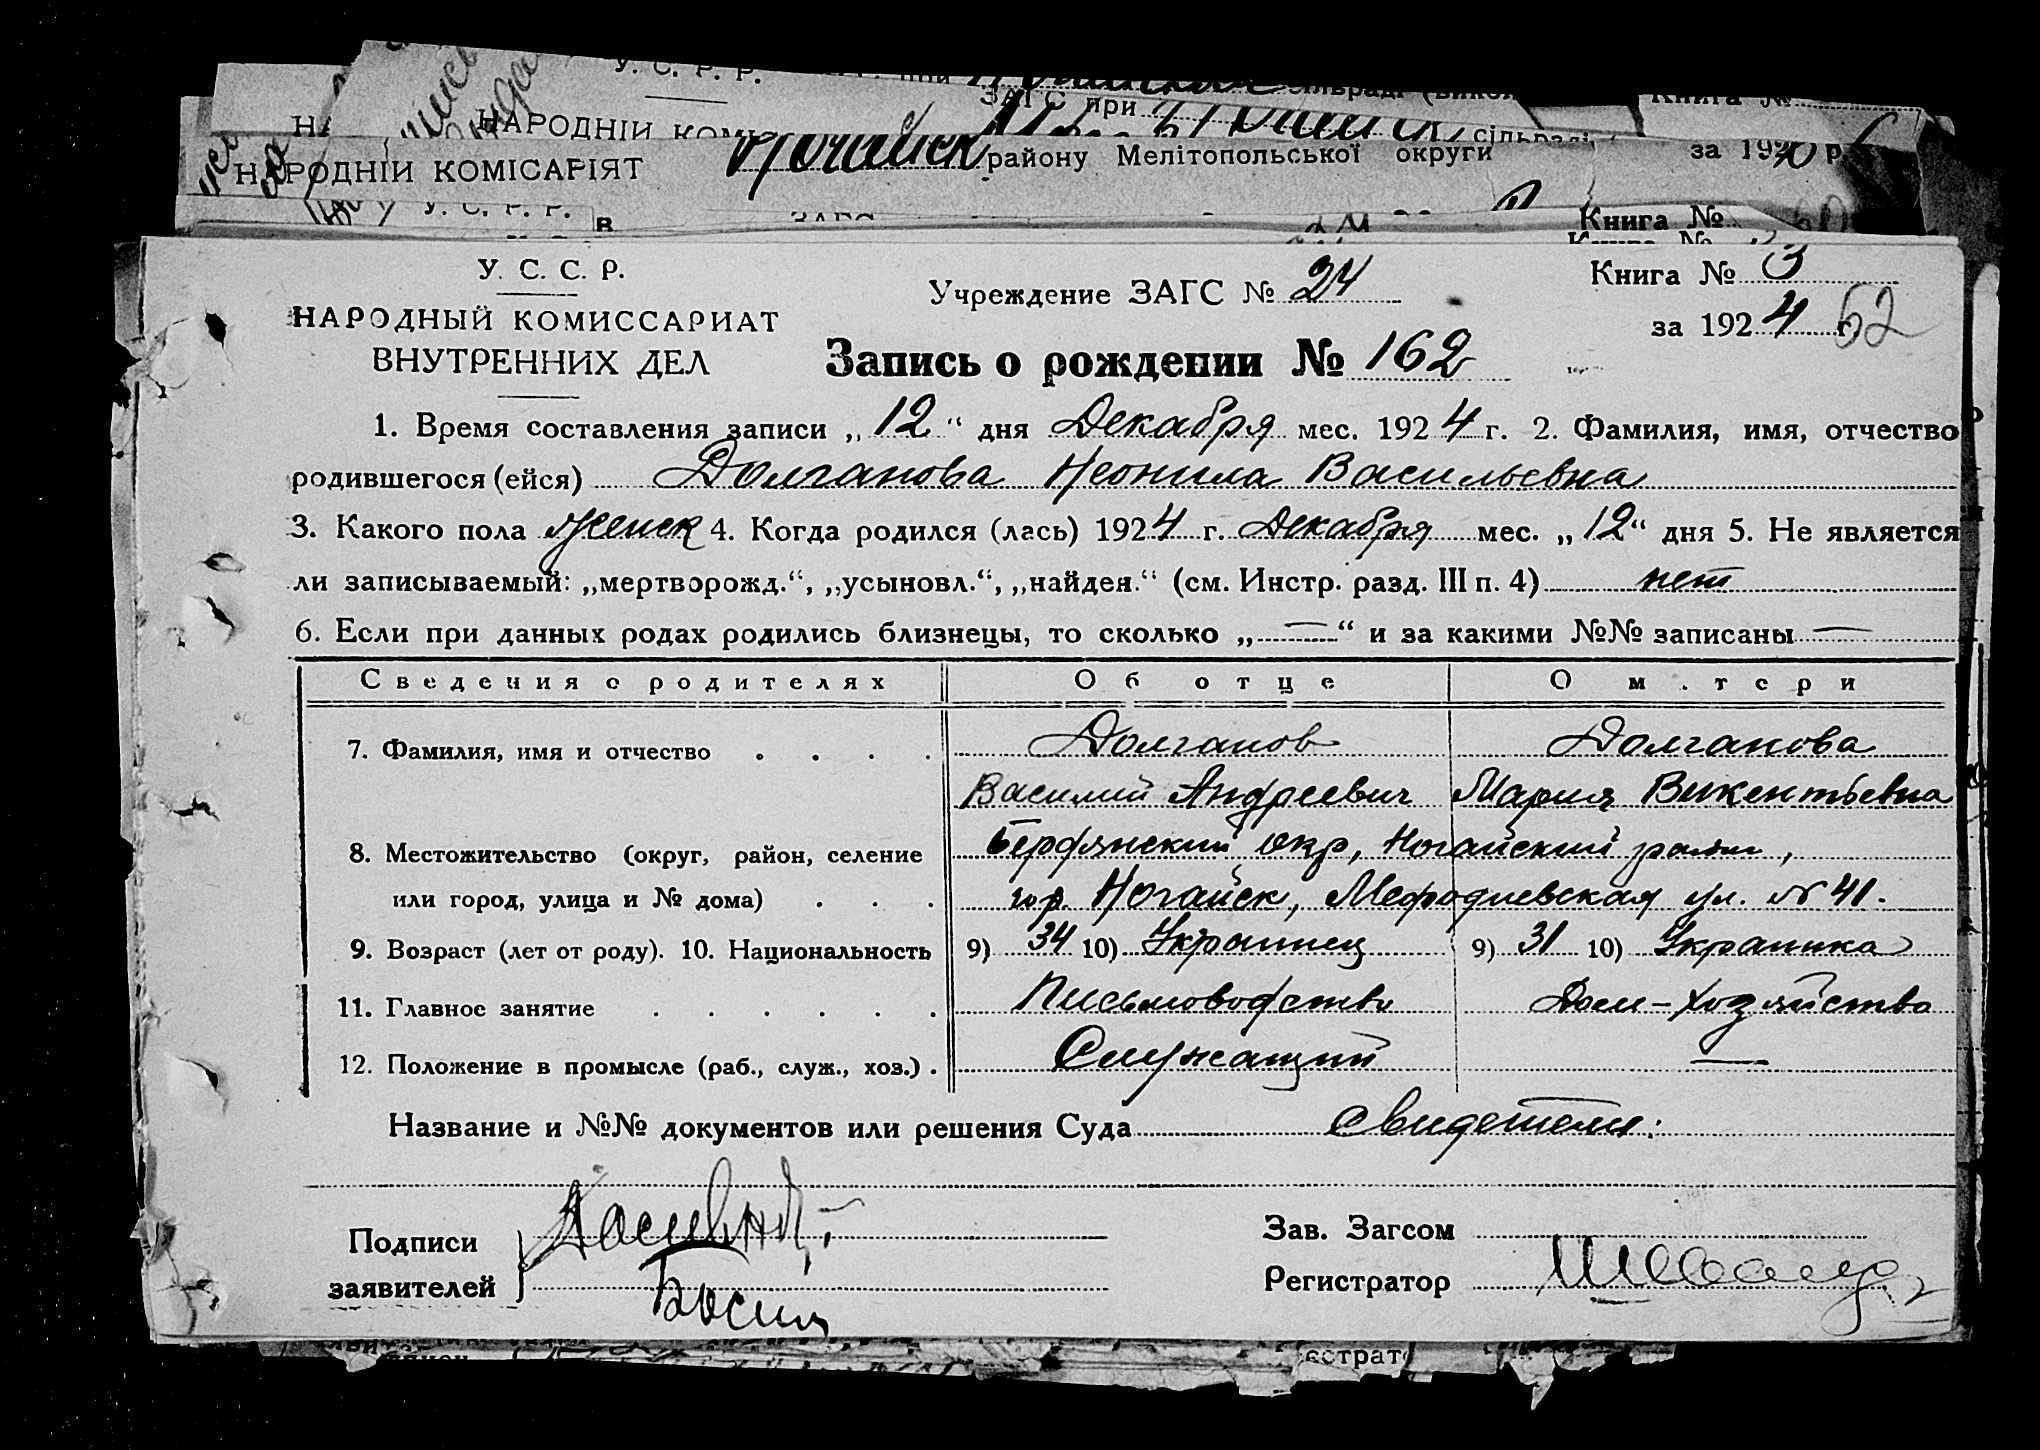 У. С. Р. Р.
ЗАГС при
Книга №
НАРОДНІЙ
НАРОДНІЙ КОМІСАРІЯТ
району Мелітопольської округи
за 192
У. С. Р. Р.
Книга №
У. С. С. Р.
НАРОДНЫЙ КОМИССАРИАТ
ВНУТРЕННИХ ДЕЛ
Учреждение ЗАГС № 24
Книга № 3
за 1924 г.
62
Запись о рождении № 162
1. Время составления записи „12“ дня Декабря мес. 1924 г. 2. Фамилия, имя, отчество
родившегося (ейся) Долганова Неонила Васильевна
3. Какого пола женск 4. Когда родился (лась) 1924 г. Декабря мес. „12“ дня 5. Не является
ли записываемый: „мертворожд.“, „усыновл.“, „найден.“ (см. Инстр. разд. III п. 4) нет
6. Если при данных родах родились близнецы, то сколько „—“ и за какими №№ записаны —
Сведения о родителях Об отце О матери
7. Фамилия, имя и отчество . . . . Долганов Долганова
Василий Андреевич Мария Викентьевна
8. Местожительство (округ, район, селение Бердянский окр, Ногайский район,
или город, улица и № дома) . . . гор. Ногайск, Мефодиевская ул. № 41.
9. Возраст (лет от роду). 10. Национальность 9) 34 10) Украинец 9) 31 10) Украинка
11. Главное занятие . . . . . . Письмоводство Дом-хозяйство
12. Положение в промысле (раб., служ., хоз.) . Служащий —
Название и №№ документов или решения Суда свидетели:
Подписи
заявителей
Зав. Загсом
Регистратор